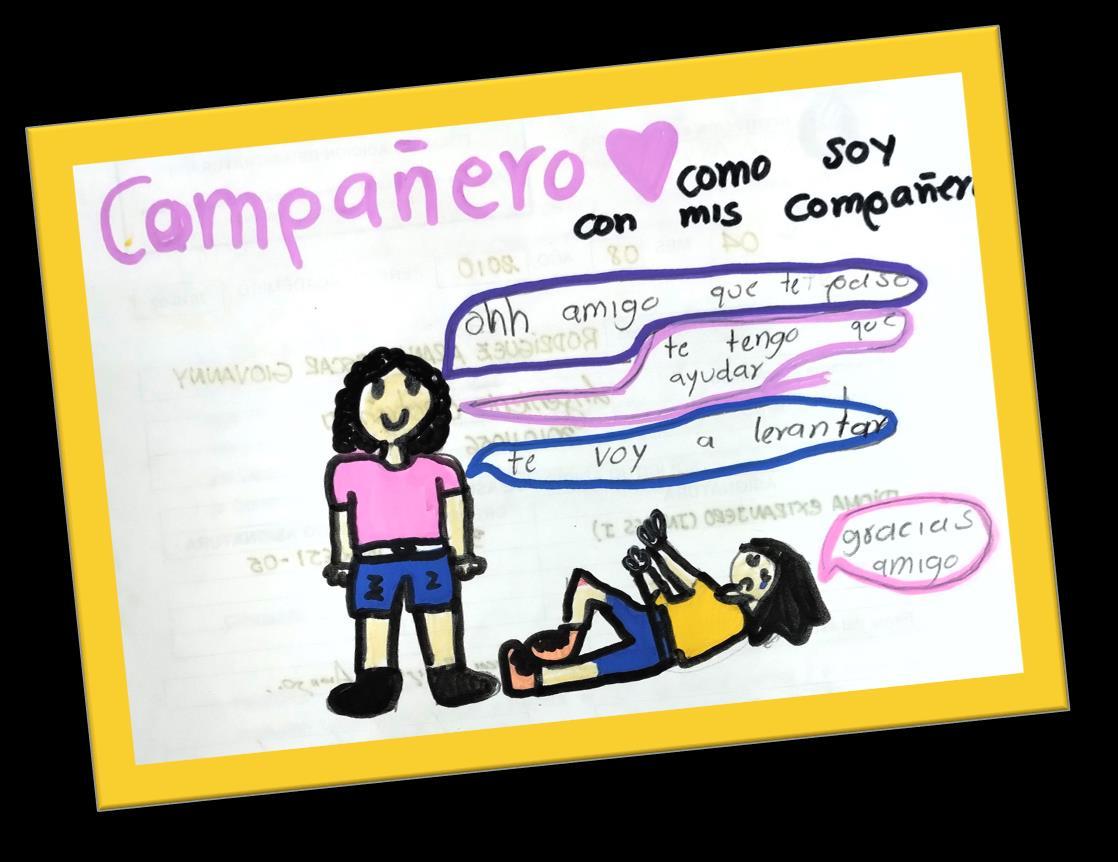 Compañero
como soy
con mis compañer
ohh amigo que te paso
te tengo que
ayudar
te voy a levantar
gracias
amigo